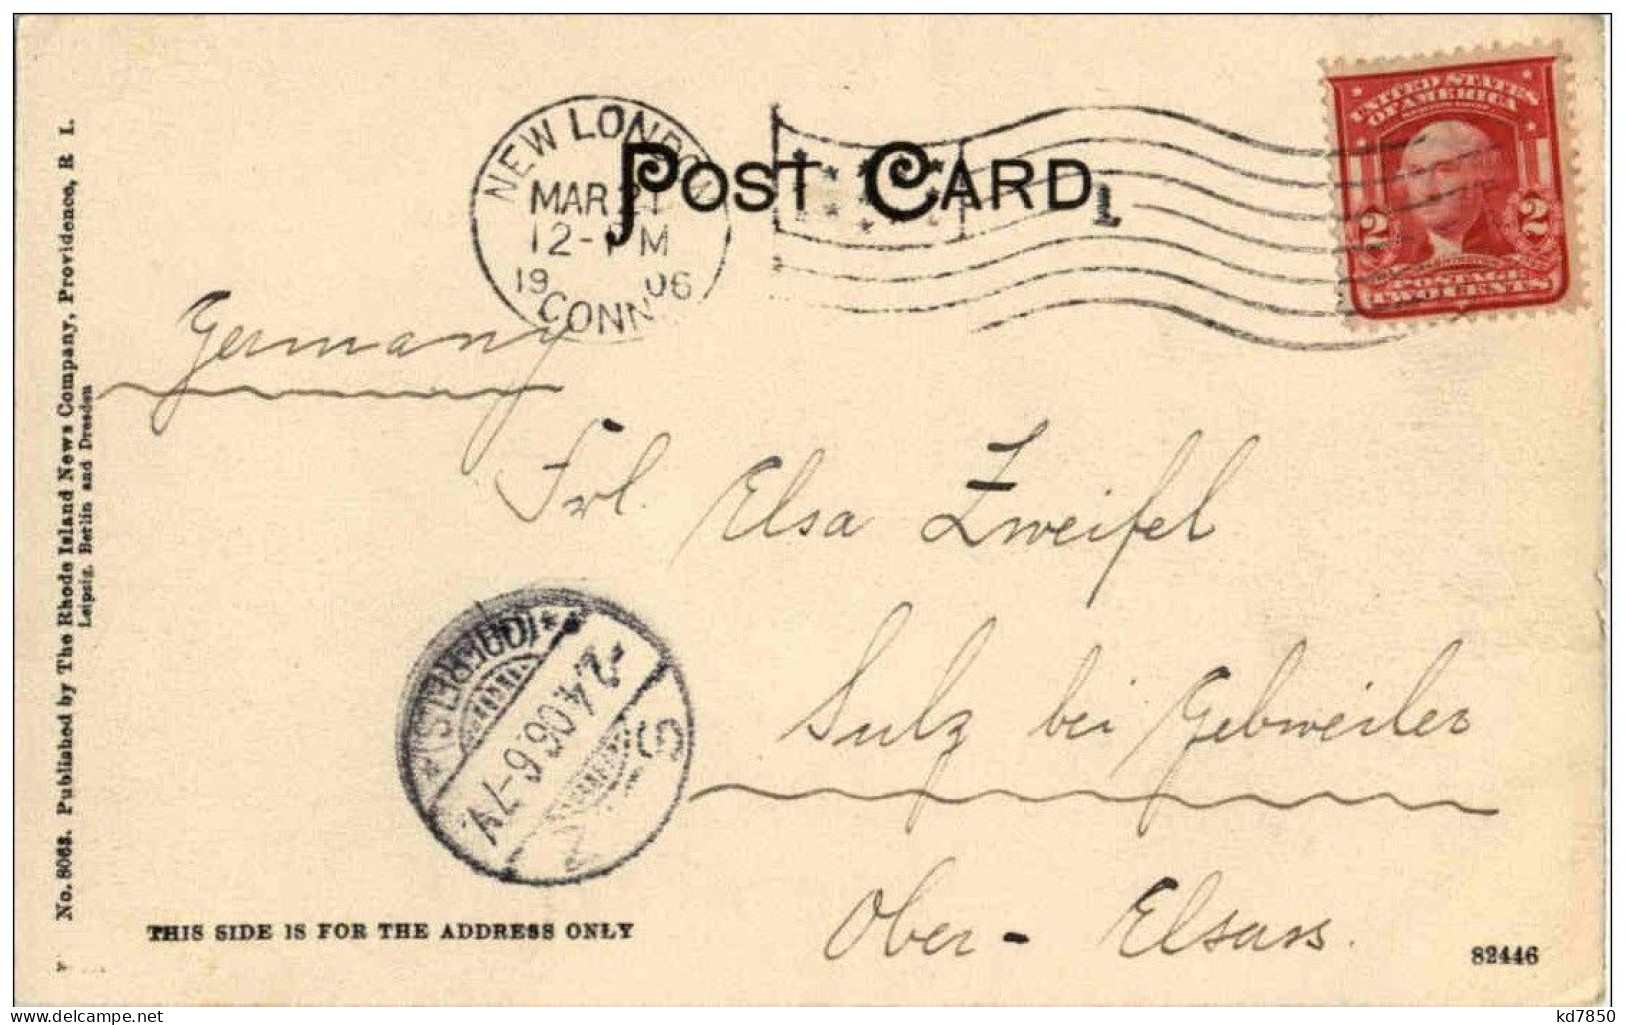 NEW LONDON
MAR 21
12-PM
1906
CONN.
POST CARD
UNITED STATES
OF AMERICA
2 2
POSTAGE
TWO CENTS
Germany
Frl. Elsa Zweifel
Sulz bei Gebweiler
Ober-Elsass.
2.4.06.6-7V.
THIS SIDE IS FOR THE ADDRESS ONLY
82446
No. 8063. Published by The Rhode Island News Company, Providence, R. I.
Leipzig, Berlin and Dresden
kd7850